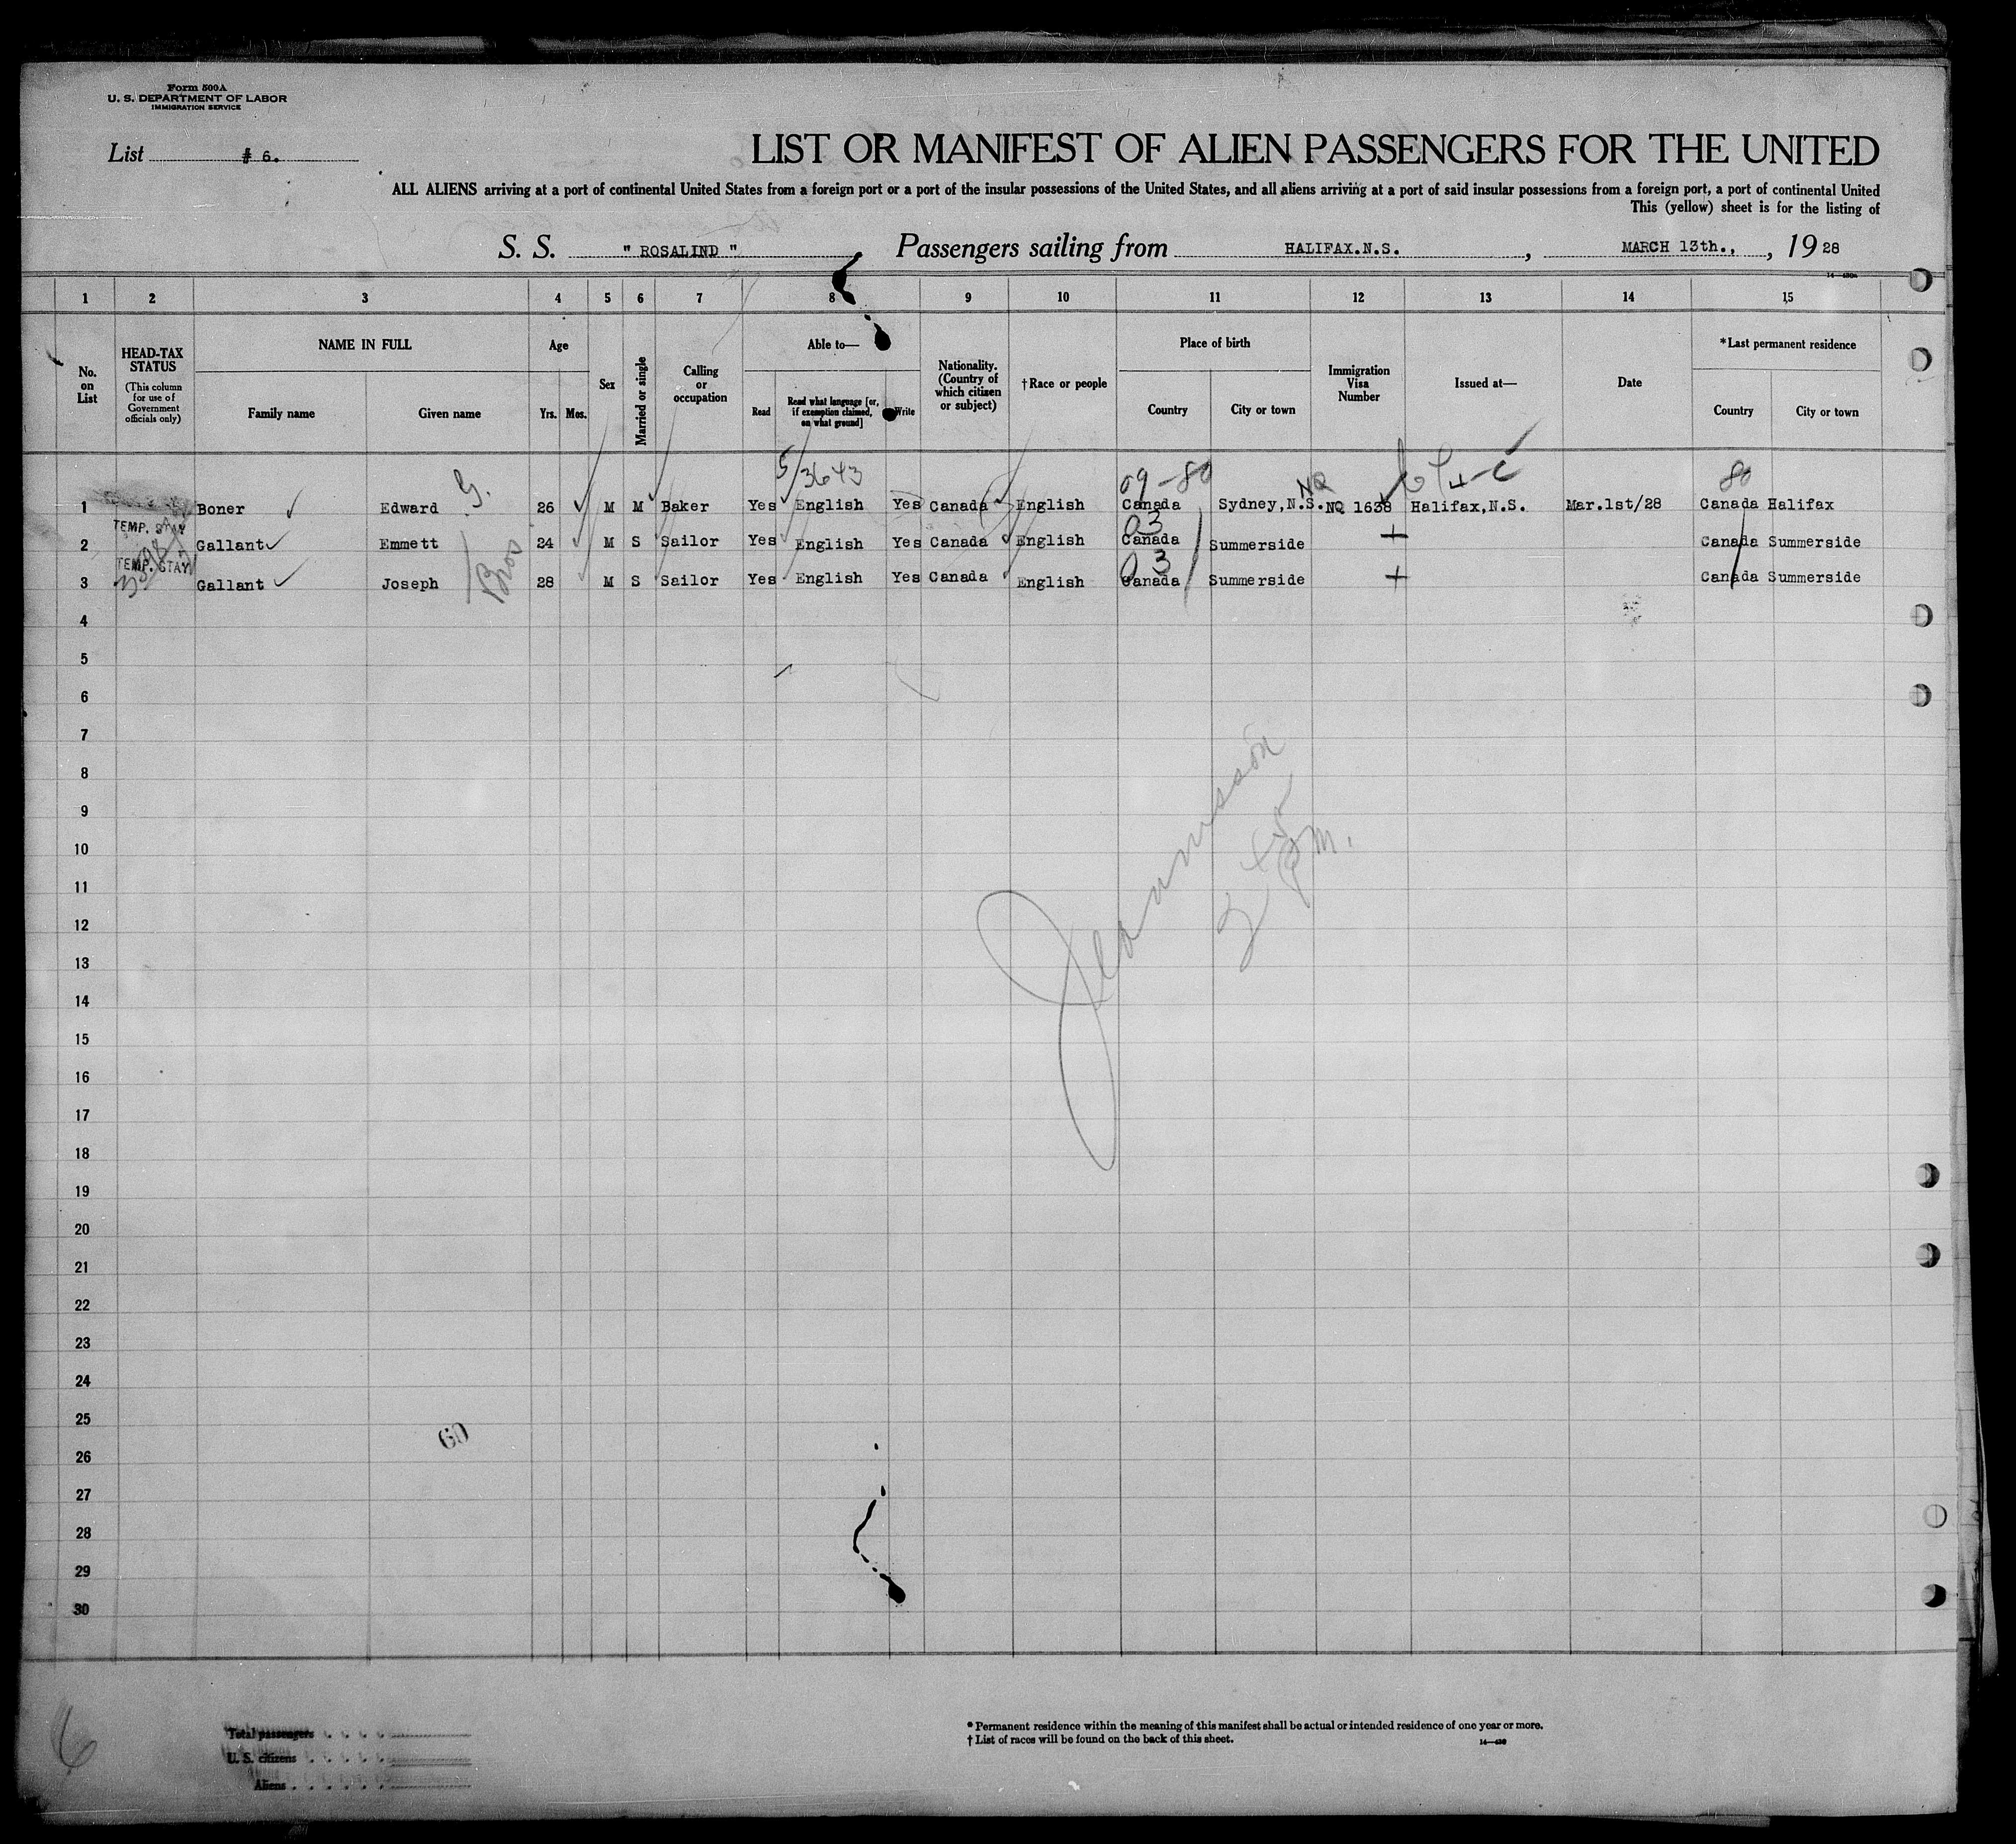 Form 500A
U. S. DEPARTMENT OF LABOR
IMMIGRATION SERVICE
List # 6.
LIST OR MANIFEST OF ALIEN PASSENGERS FOR THE UNITED
ALL ALIENS arriving at a port of continental United States from a foreign port or a port of the insular possessions of the United States, and all aliens arriving at a port of said insular possessions from a foreign port, a port of continental United
This (yellow) sheet is for the listing of
S. S. " ROSALIND " Passengers sailing from HALIFAX.N.S. , MARCH 13th., , 19 28
1 2 3 4 5 6 7 8 9 10 11 12 13 14 15
No. on List
HEAD-TAX STATUS
(This column for use of Government officials only)
NAME IN FULL
Family name Given name
Age
Yrs. Mos.
Sex
Married or single
Calling or occupation
Able to—
Read
Read what language [or, if exemption claimed, on what ground]
Write
Nationality. (Country of which citizen or subject)
†Race or people
Place of birth
Country City or town
Immigration Visa Number
Issued at—
Date
*Last permanent residence
Country City or town
5/3643 09-80 NQ 80
1 Boner Edward G. 26 M M Baker Yes English Yes Canada English Canada Sydney,N.S. NQ 1638 Halifax,N.S. Mar.1st/28 Canada Halifax
TEMP. STAY 03
2 Gallant Emmett 24 M S Sailor Yes English Yes Canada English Canada Summerside + Canada Summerside
Bros
TEMP. STAY 03
3 Gallant Joseph 28 M S Sailor Yes English Yes Canada English Canada Summerside + Canada Summerside
4
5
6
7
8
9
10
11
12
13
14
15
16
17
18
19
20
21
22
23
24
25
26
27
28
29
30
3 45
PM.
60
6
Total passengers
U. S. citizens
Aliens
* Permanent residence within the meaning of this manifest shall be actual or intended residence of one year or more.
† List of races will be found on the back of this sheet.
14—430